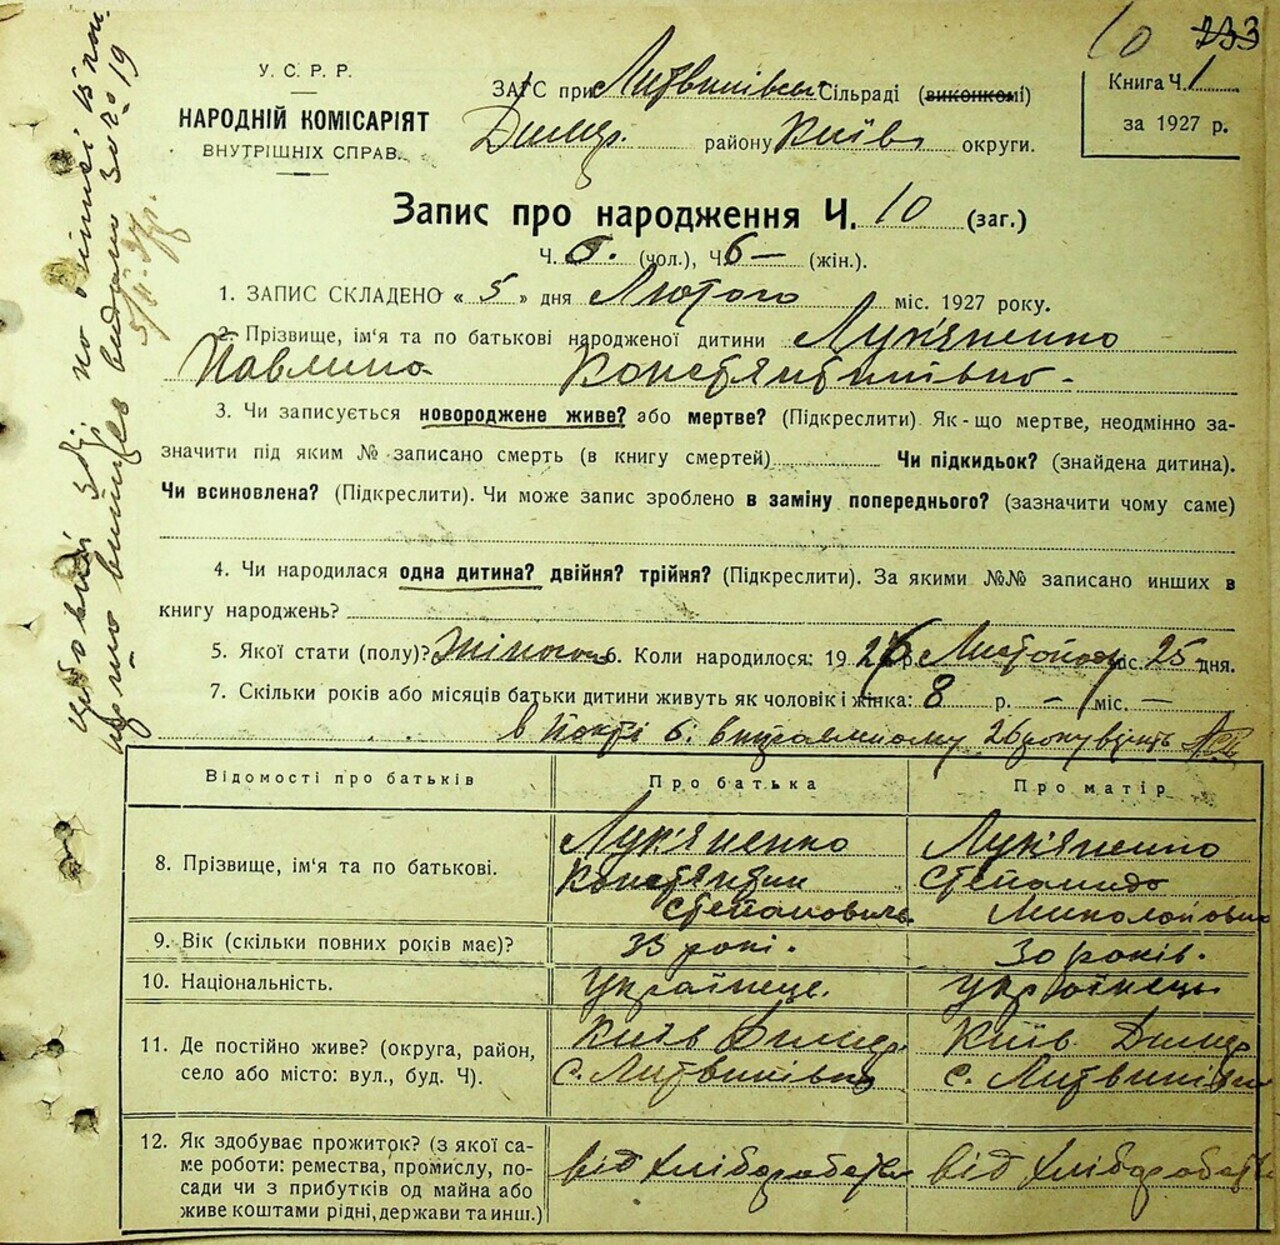 10 233
У. С. Р. Р.
НАРОДНІЙ КОМІСАРІЯТ
ВНУТРІШНІХ СПРАВ.
ЗАГС при Литвинівськ Сільраді (виконкомі)
Димер. району Київ округи.
Книга Ч. 1
за 1927 р.
Запис про народження Ч. 10 (заг.)
Ч. (чол.), Ч. 6 — (жін.).
1. ЗАПИС СКЛАДЕНО « 5 » дня Лютого міс. 1927 року.
2. Прізвище, ім'я та по батькові народженої дитини Лук'яненко
Павлина Констянтинівна.
3. Чи записується новороджене живе? або мертве? (Підкреслити). Як-що мертве, неодмінно за-
значити під яким № записано смерть (в книгу смертей) Чи підкидьок? (знайдена дитина).
Чи всиновлена? (Підкреслити). Чи може запис зроблено в заміну попереднього? (зазначити чому саме)
4. Чи народилася одна дитина? двійня? трійня? (Підкреслити). За якими №№ записано инших в
книгу народжень?
5. Якої стати (полу)? Жіночого 6. Коли народилося: 1926 р. Листопада міс. 25 дня.
7. Скільки років або місяців батьки дитини живуть як чоловік і жінка: 8 р. — міс. —
в 6. виправленому 26 року вірить
Відомості про батьків
Про батька
Про матір
8. Прізвище, ім'я та по батькові.
Лук'яненко
Констянтин
Степанович.
Лук'яненко
Степанида
Миколаївна
9. Вік (скільки повних років має)?
33 рокі.
30 років.
10. Національність.
Українець.
Українець
11. Де постійно живе? (округа, район,
село або місто: вул., буд. Ч).
Київ Димер.
с. Литвинівка
Київ. Димер
с. Литвинівка
12. Як здобуває прожиток? (з якої са-
ме роботи: ремества, промислу, по-
сади чи з прибутків од майна або
живе коштами рідні, держави та инш.)
від хліборобства
від хліборобства